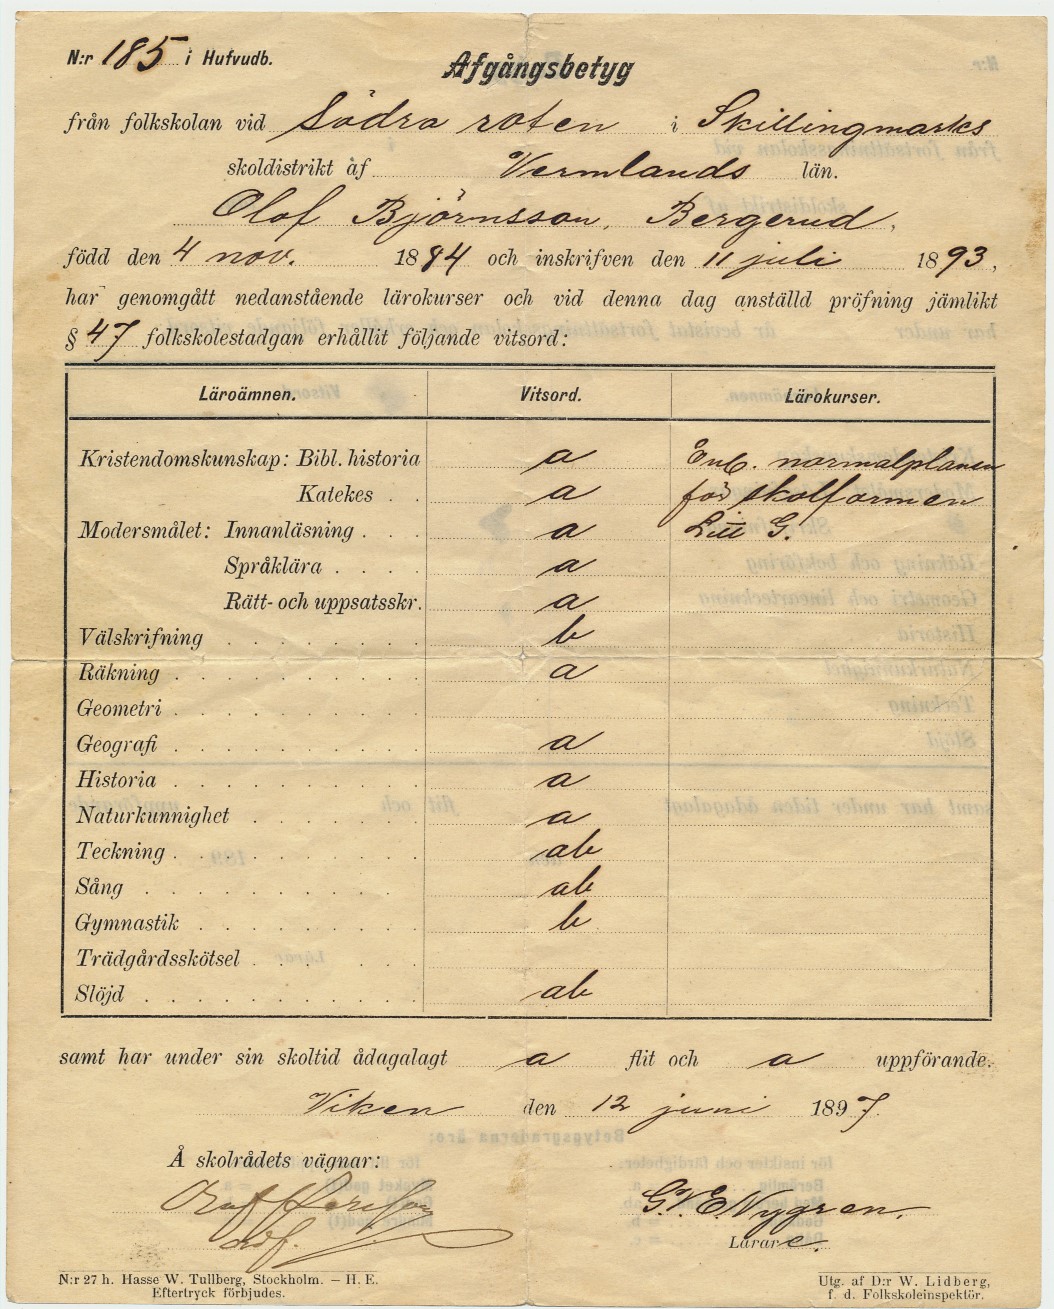 N:r 185 i Hufvudb.
Afgångsbetyg
från folkskolan vid Södra roten i Skillingmarks
skoldistrikt af Vermlands län.
Olof Björnsson, Bergerud,
född den 4 nov. 1884 och inskrifven den 11 juli 1893,
har genomgått nedanstående lärokurser och vid denna dag anställd pröfning jämlikt
§ 47 folkskolestadgan erhållit följande vitsord:
Läroämnen. Vitsord. Lärokurser.
Kristendomskunskap: Bibl. historia a Enl. normalplanen
Katekes . . a för skolformen
Modersmålet: Innanläsning . . . a Litt G.
Språklära . . . . a
Rätt- och uppsatsskr. a
Välskrifning . . . . . . . . b
Räkning . . . . . . . . . . a
Geometri . . . . . . . . . .
Geografi . . . . . . . . . . a
Historia . . . . . . . . . . a
Naturkunnighet . . . . . . . a
Teckning . . . . . . . . . . ab
Sång . . . . . . . . . . . ab
Gymnastik . . . . . . . . . b
Trädgårdsskötsel . . . . . .
Slöjd . . . . . . . . . . . ab
samt har under sin skoltid ådagalagt a flit och a uppförande.
Viken den 12 juni 1897.
Å skolrådets vägnar:
G. V. E. Nygren.
Lärare.
N:r 27 h. Hasse W. Tullberg, Stockholm. — H. E.
Eftertryck förbjudes.
Utg. af D:r W. Lidberg,
f. d. Folkskoleinspektör.